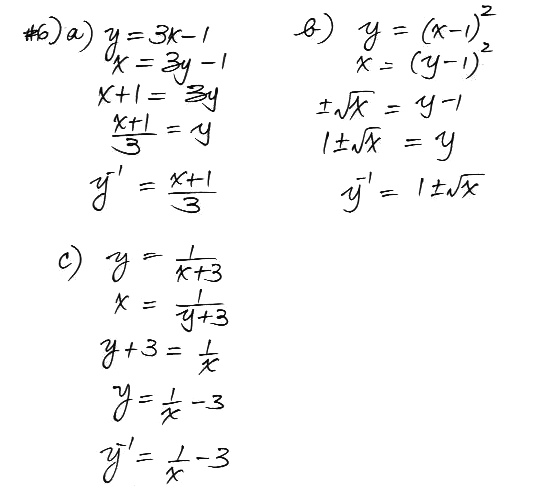 #6) a) y = 3x-1
x = 3y-1
x+1 = 3y
x+1/3 = y
y⁻¹ = x+1/3
b) y = (x-1)²
x = (y-1)²
±√x = y-1
1±√x = y
y⁻¹ = 1±√x
c) y = 1/x+3
x = 1/y+3
y+3 = 1/x
y = 1/x -3
y⁻¹ = 1/x -3